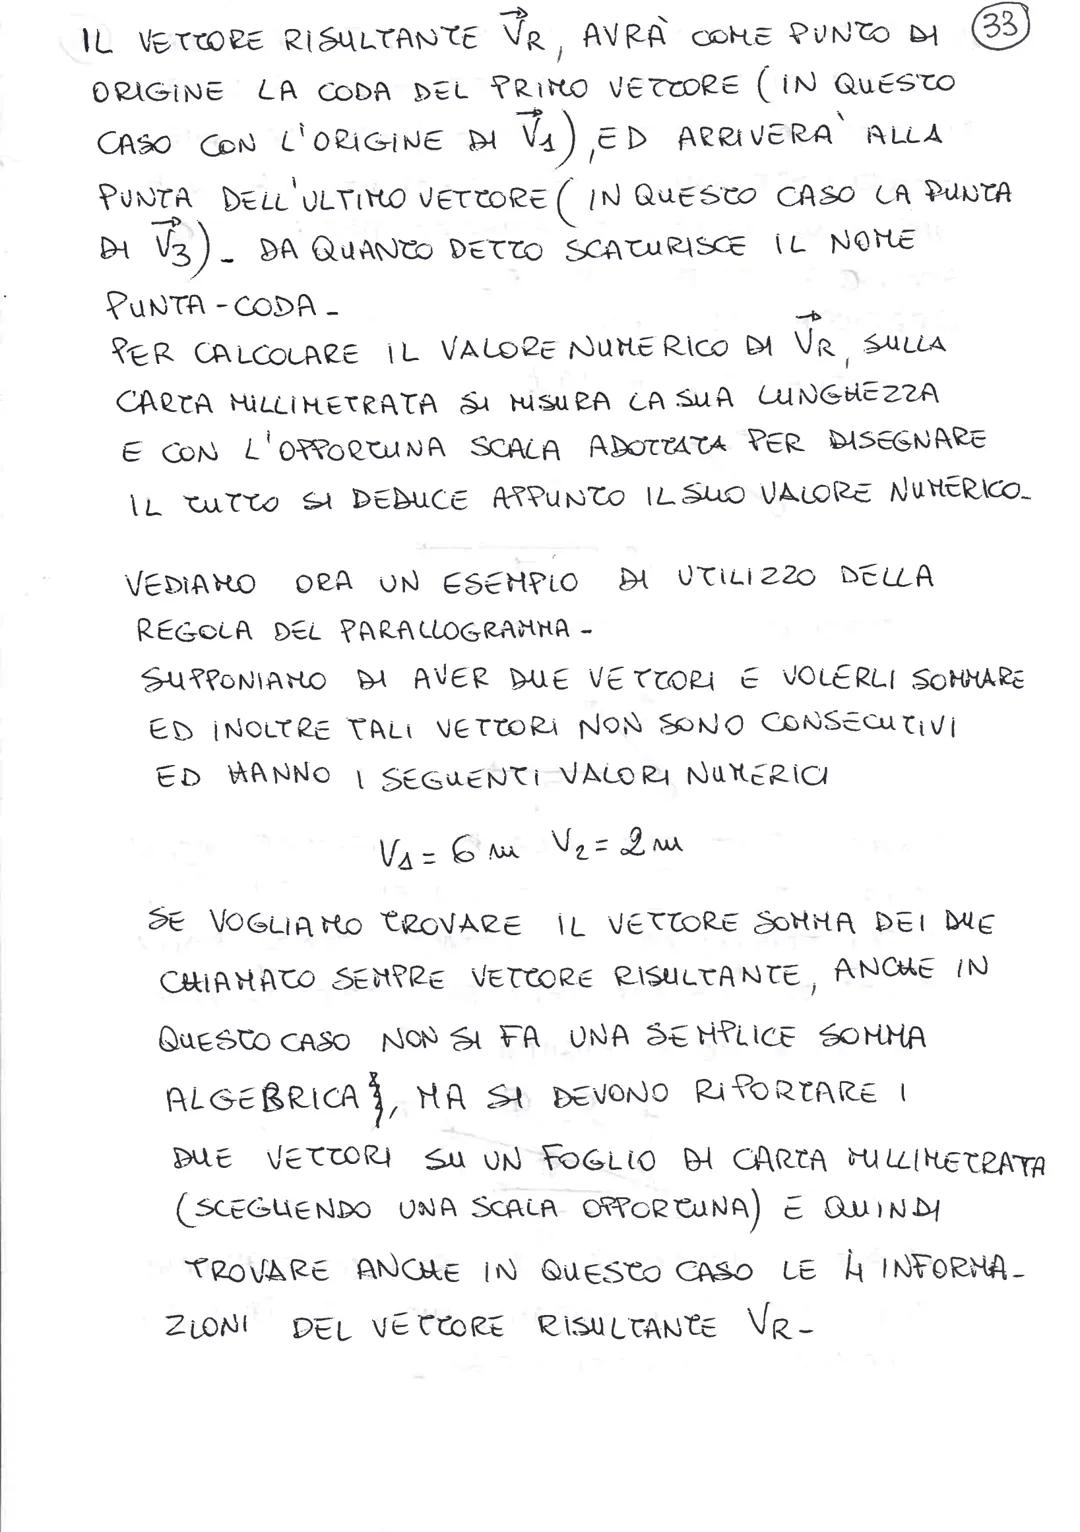 IL VETTORE RISULTANTE V⃗R, AVRÀ COME PUNTO DI
33
ORIGINE LA CODA DEL PRIMO VETTORE (IN QUESTO
CASO CON L'ORIGINE DI V⃗1), ED ARRIVERA' ALLA
PUNTA DELL'ULTIMO VETTORE (IN QUESTO CASO LA PUNTA
DI V⃗3)_ DA QUANTO DETTO SCATURISCE IL NOME
PUNTA-CODA_
PER CALCOLARE IL VALORE NUMERICO DI V⃗R, SULLA
CARTA MILLIMETRATA SI MISURA LA SUA LUNGHEZZA
E CON L'OPPORTUNA SCALA ADOTTATA PER DISEGNARE
IL TUTTO SI DEDUCE APPUNTO IL SUO VALORE NUMERICO_
VEDIAMO ORA UN ESEMPIO DI UTILIZZO DELLA
REGOLA DEL PARALLOGRAMMA-
SUPPONIAMO DI AVER DUE VETTORI E VOLERLI SOMMARE
ED INOLTRE TALI VETTORI NON SONO CONSECUTIVI
ED HANNO I SEGUENTI VALORI NUMERICI
V1 = 6 m V2 = 2 m
SE VOGLIAMO TROVARE IL VETTORE SOMMA DEI DUE
CHIAMATO SEMPRE VETTORE RISULTANTE, ANCHE IN
QUESTO CASO NON SI FA UNA SEMPLICE SOMMA
ALGEBRICA, MA SI DEVONO RIPORTARE I
DUE VETTORI SU UN FOGLIO DI CARTA MILLIMETRATA
(SCEGLIENDO UNA SCALA OPPORTUNA) E QUINDI
TROVARE ANCHE IN QUESTO CASO LE 4 INFORMA-
ZIONI DEL VETTORE RISULTANTE VR-